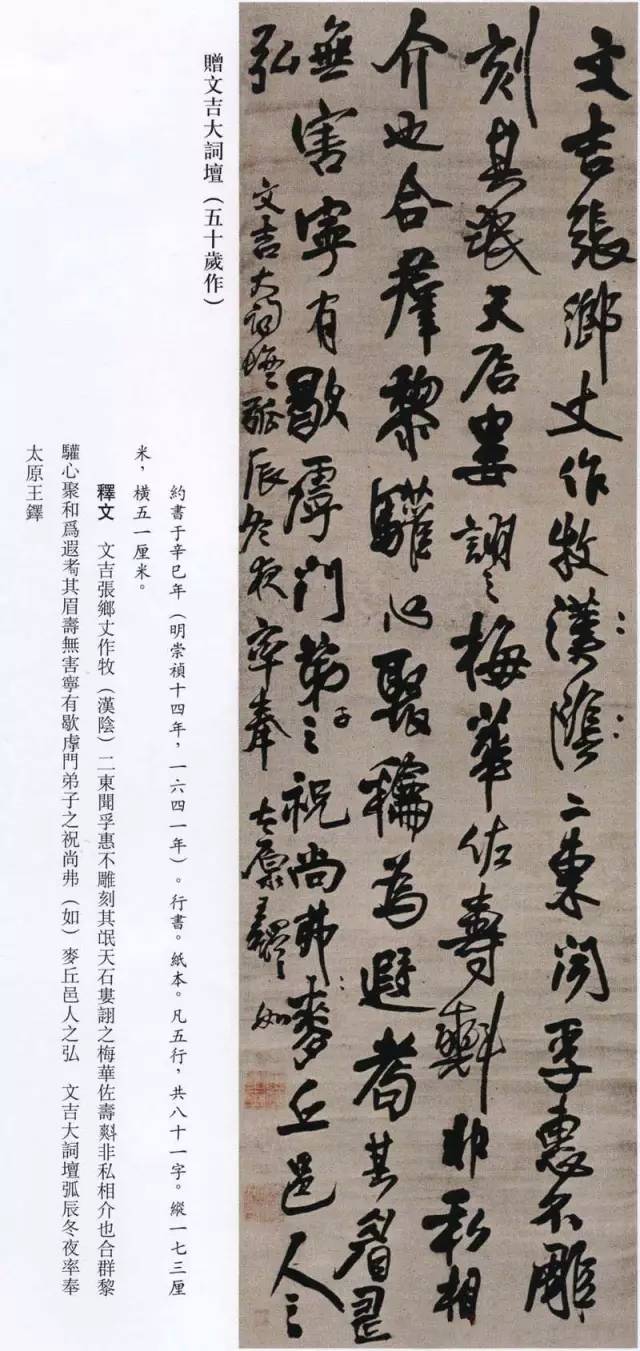 文吉張鄉丈作牧漢陰二東聞孚惠不雕
刻其氓天石婁詡之梅華佐壽㪺非私相
介也合羣黎驩心聚龢為遐耇其眉壽
無害寧有歇虖門弟子之祝尚弗麥丘邑人之
弘 文吉大詞壇弧辰冬夜率奉 太原王鐸 如
贈文吉大詞壇（五十歲作）
約書于辛巳年（明崇禎十四年，一六四一年）。行書。紙本。凡五行，共八十一字。縱一七三厘
米，橫五一厘米。
釋文 文吉張鄉丈作牧（漢陰）二東聞孚惠不雕刻其氓天石婁詡之梅華佐壽㪺非私相介也合群黎
驩心聚和爲遐耇其眉壽無害寧有歇虖門弟子之祝尚弗（如）麥丘邑人之弘 文吉大詞壇弧辰冬夜率奉
太原王鐸